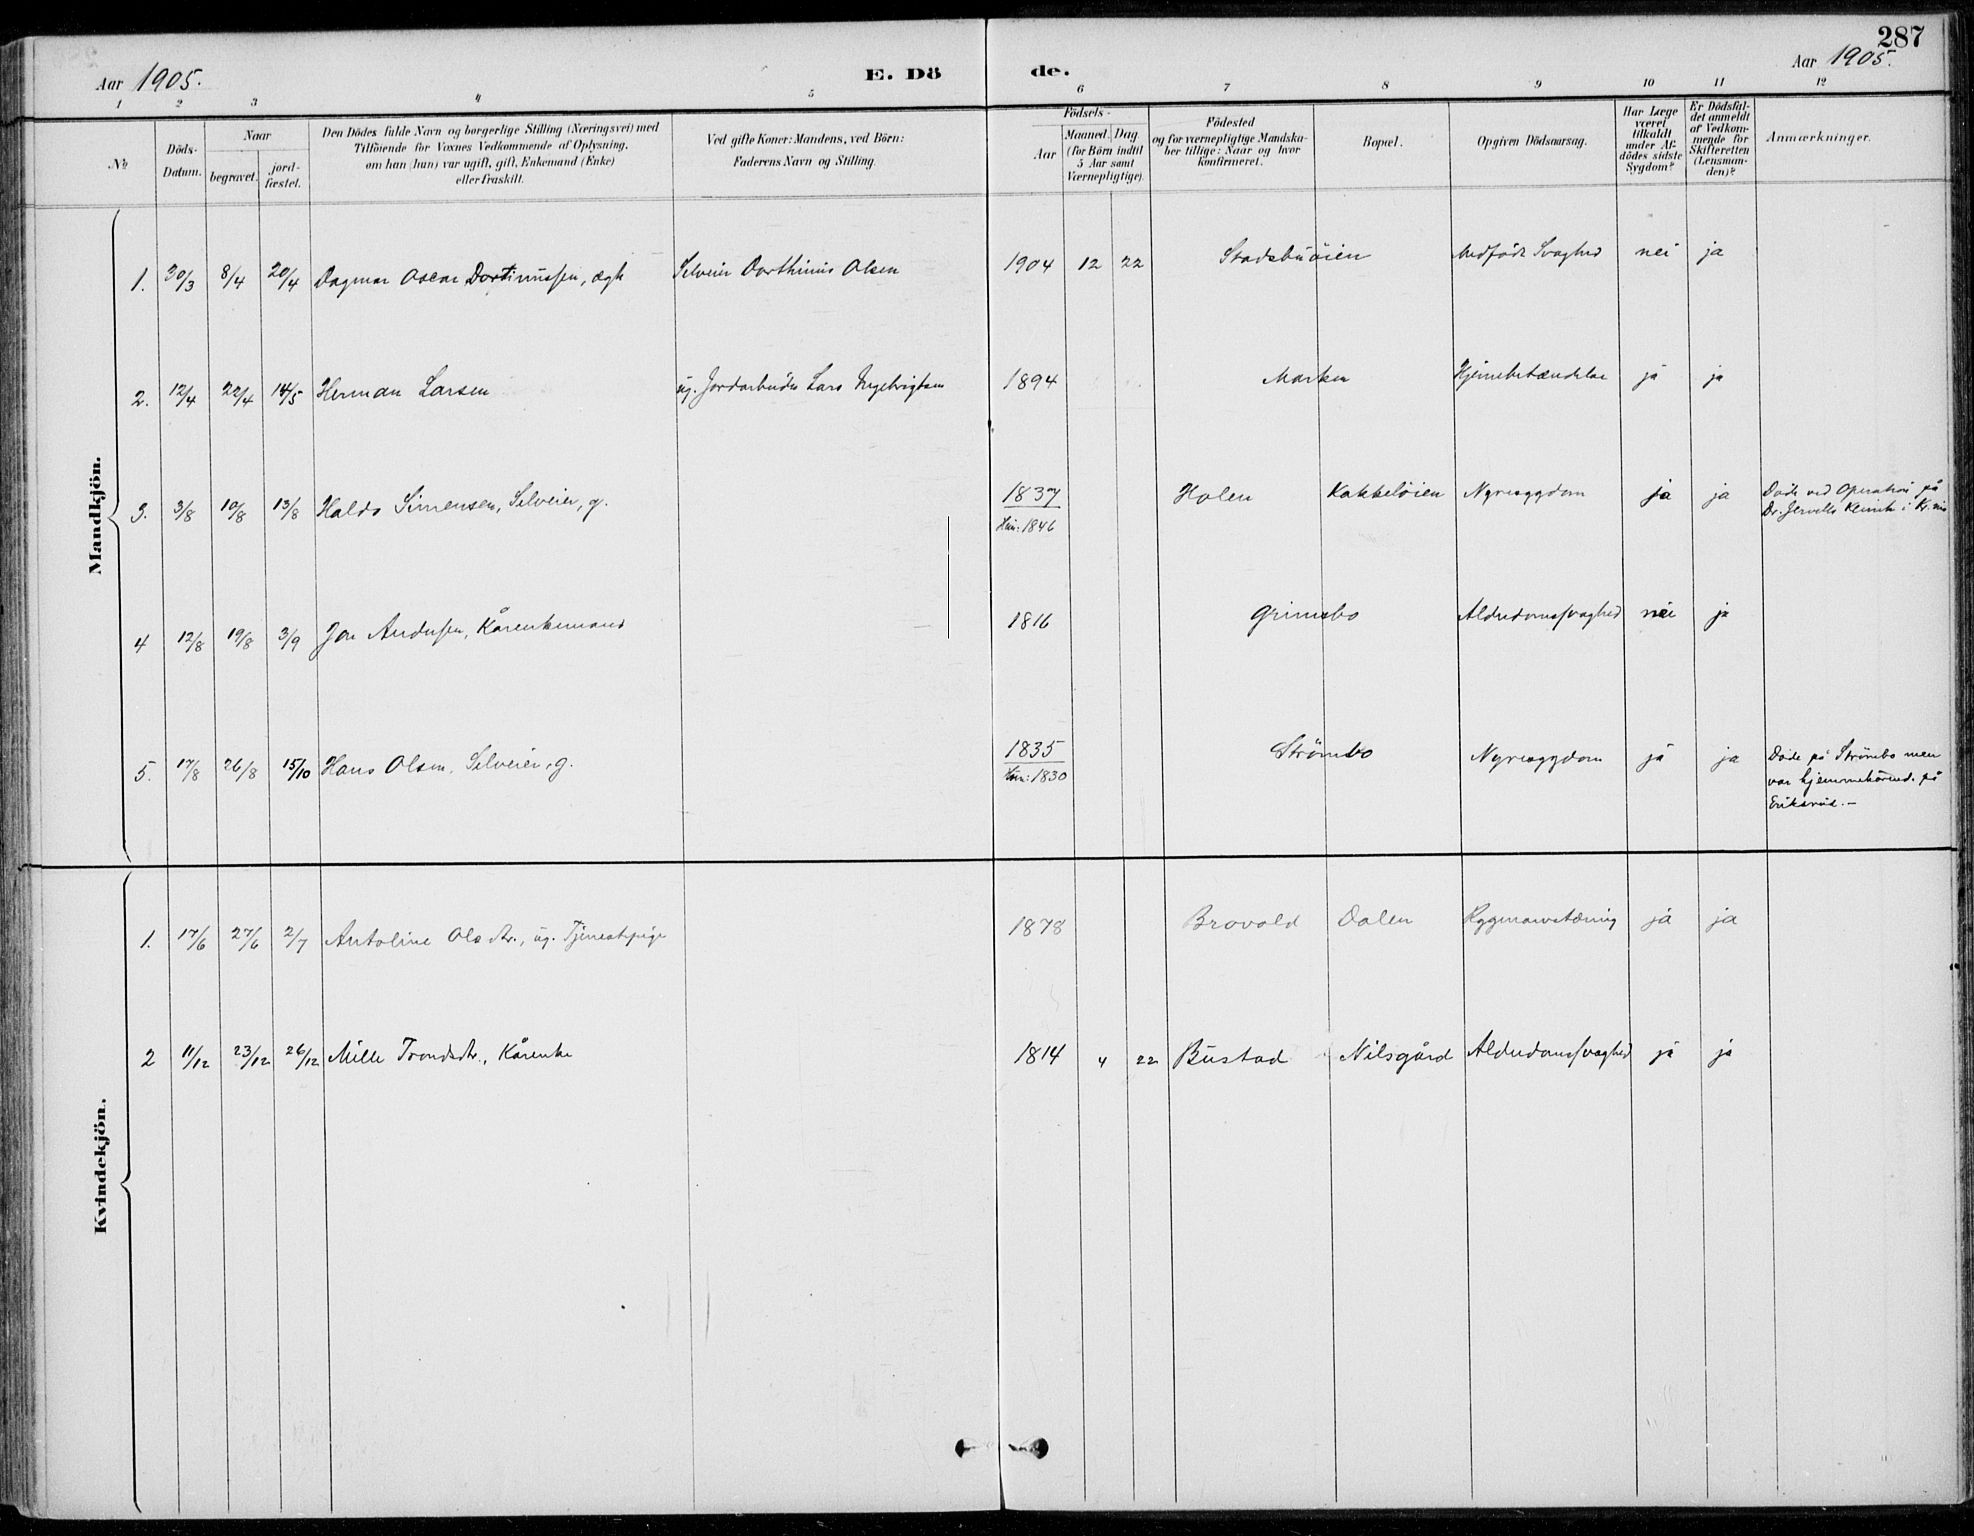 287
Aar 1905. E. Dö de. Aar 1905.
1 2 3 4 5 6 7 8 9 10 11 12
No
Döds-Datum.
Naar
begravet. jord-fæstet.
Den Dödes fulde Navn og borgerlige Stilling (Næringsvei) med
Tilföiende for Voxnes Vedkommende af Oplysning,
om han (hun) var ugift, gift, Enkemand (Enke)
eller fraskilt.
Ved gifte Koner: Mandens, ved Börn:
Faderens Navn og Stilling.
Födsels-
Aar
Maaned. Dag.
(for Börn indtil
5 Aar samt
Værnepligtige).
Födested
og for værnepligtige Mandska-
ber tillige: Naar og hvor
konfirmeret.
Bopæl.
Opgiven Dödsaarsag.
Har Læge
været
tilkaldt
under Af-
dödes sidste
Sygdom?
Er Dödsfal-
det anmeldt
af Vedkom-
mende for
Skifteretten
(Lensman-
den)?
Anmærkninger.
Mandkjön.
1. 30/3 8/4 20/4 Dagmar Oscar Dortinussen, ægte Selveier Dorthinius Olsen 1904 12 22 Stadsbuöien Medfödt Svaghed nei ja
2. 12/4 22/4 14/5 Herman Larsen ug. Jordarbeider Lars Ingebrigtsen 1894 Marken Hjernebetændelse ja ja
3. 3/8 10/8 13/8 Haldo Simensen, Selveier, g. 1837 Holen Kakkelöien Nyresygdom ja ja Döde ved Operation på
Hun: 1846 Dr. Jervells Klinik i Kr.nia
4 12/8 19/8 3/9 Jon Andersen, Kårenkemand 1816 Grimsbo Alderdomssvaghed nei ja
5. 17/8 26/8 15/10 Hans Olsen, Selveier, g. 1835 Strömbo Nyresygdom ja ja Döde på Strömbo men
Hun: 1830 var hjemmehörend. på
Eriksrud.-
Kvindekjön.
1. 17/6 27/6 2/7 Antoline Olsdtr., ug. Tjenestepige 1878 Brovold Dalen Rygmarvstæring ja ja
2 11/12 23/12 26/12 Mille Trondsdtr., Kårenke 1814 4 22 Bustad Nilsgård Alderdomssvaghed ja ja